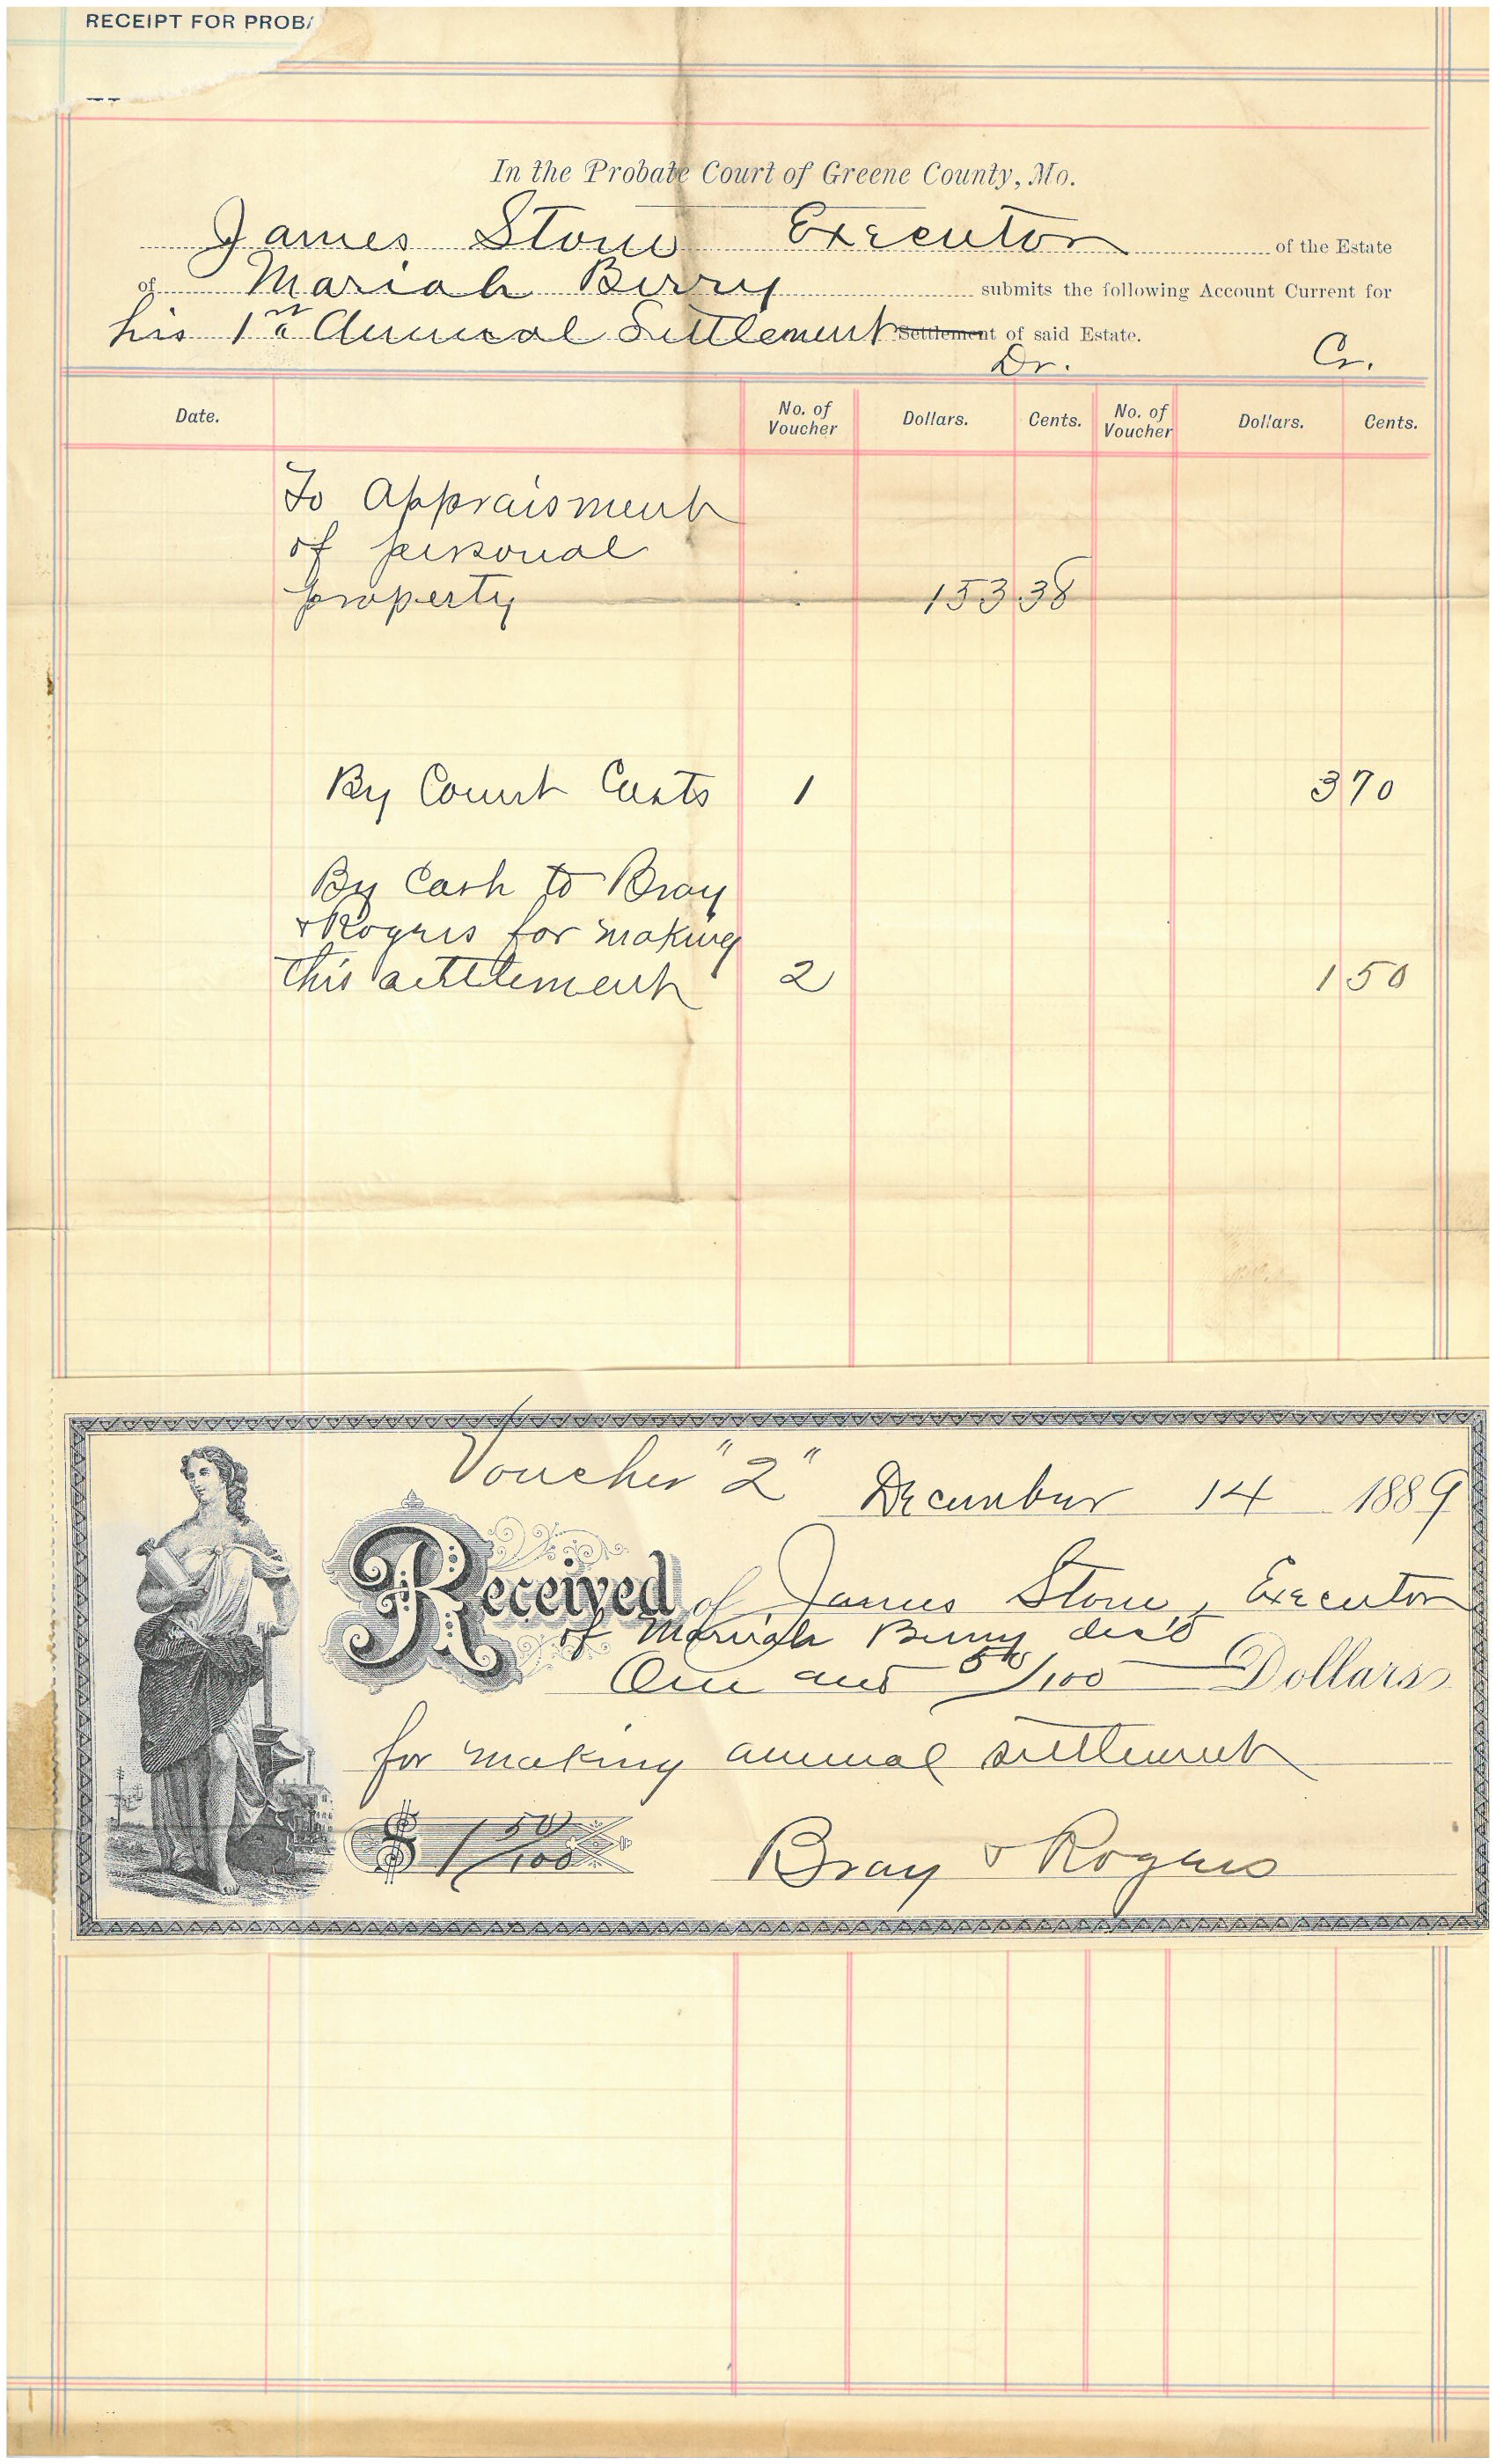 RECEIPT FOR PROBA
In the Probate Court of Greene County, Mo.
James Stone Executor of the Estate
of Mariah Berry submits the following Account Current for
his 1st Annual Settlement Settlement of said Estate.
Dr. Cr.
Date. No. of Voucher Dollars. Cents. No. of Voucher Dollars. Cents.
To Appraisment
of personal
property 153 38
By Court Costs 1 3 70
By Cash to Bray
& Rogers for making
this settlement 2 1 50
Voucher "2" December 14 1889
Received of James Stone, Executor
of Mariah Berry dec'd
One and 50/100 Dollars
for making annual settlement
$ 1 50/100 Bray & Rogers